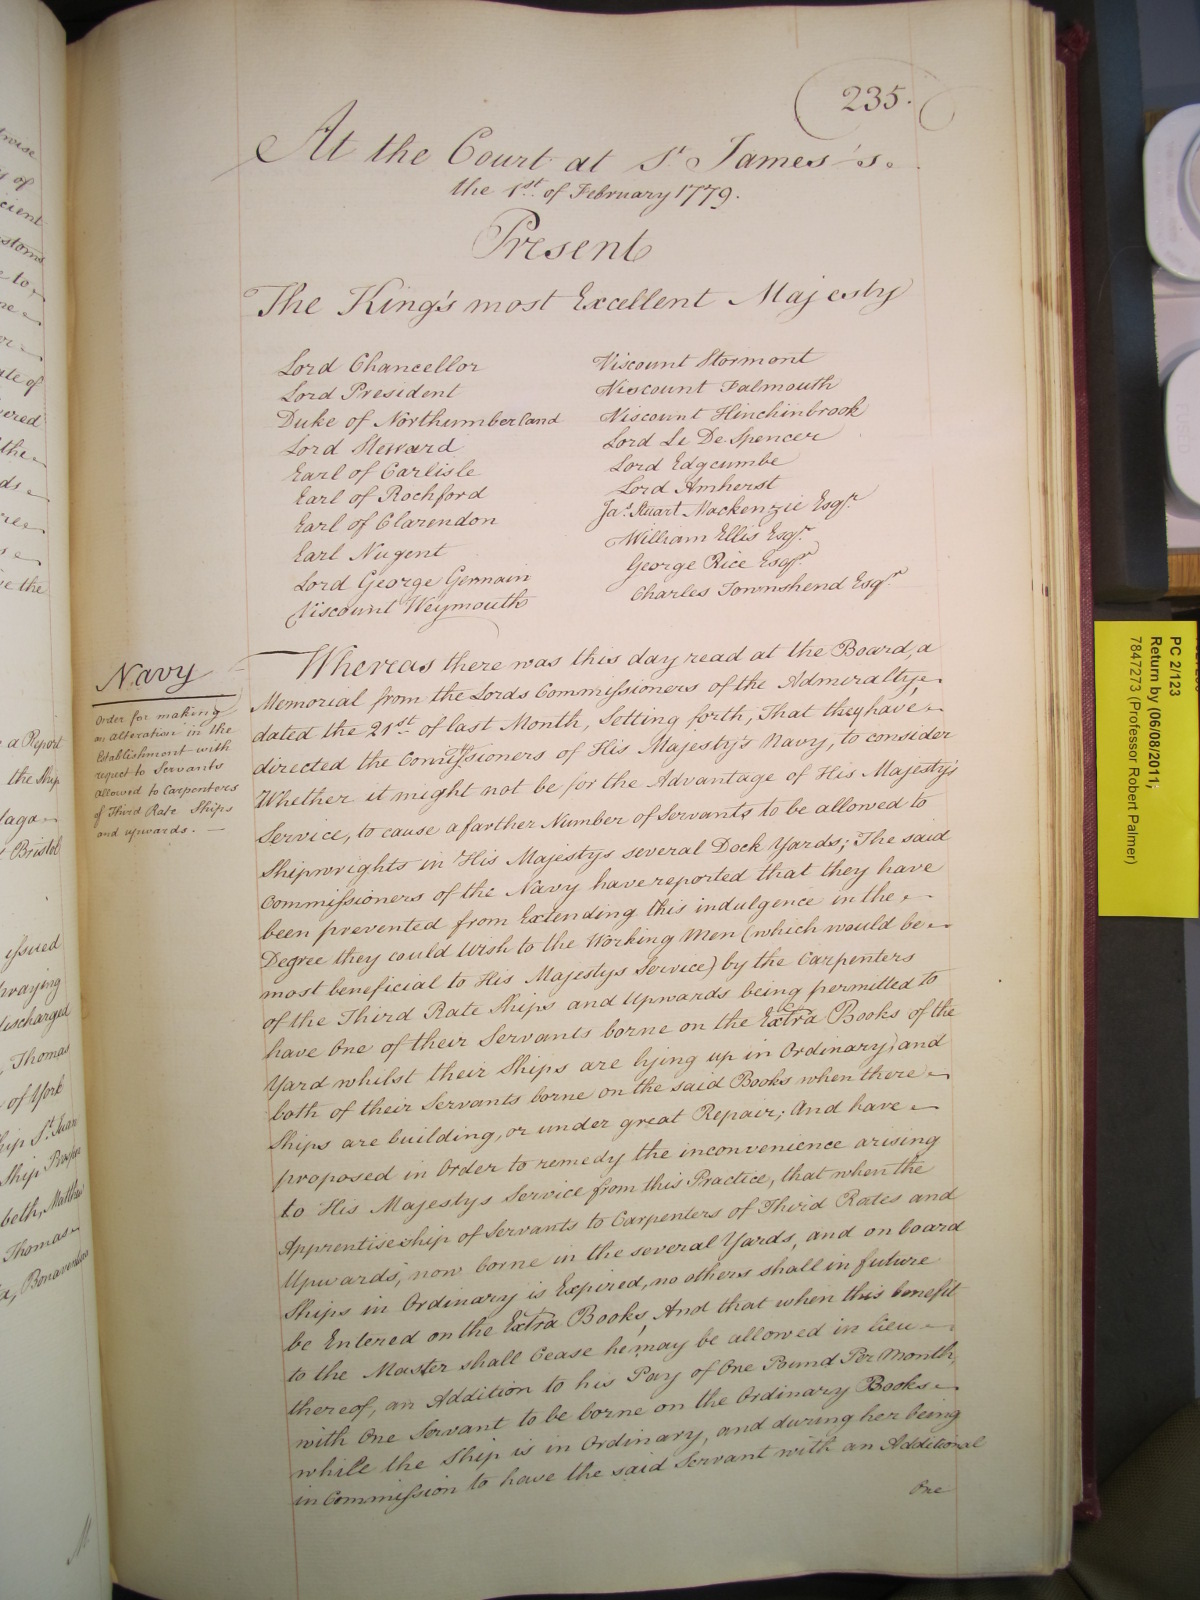 235.
At the Court at St. James's.
the 1st. of February 1779.
Present
The King's most Excellent Majesty
Lord Chancellor
Lord President
Duke of Northumberland
Lord Steward
Earl of Carlisle
Earl of Rochford
Earl of Clarendon
Earl Nugent
Lord George Germain
Viscount Weymouth
Viscount Stormont
Viscount Falmouth
Viscount Hinchinbrook
Lord Le De Spencer
Lord Edgcumbe
Lord Amherst
Jas. Stuart Mackenzie Esqr.
William Ellis Esqr.
George Rice Esqr.
Charles Townshend Esqr.
Navy
Order for making
an alteration in the
Establishment with
respect to Servants
allowed to Carpenters
of Third Rate Ships
and upwards. —
Whereas there was this day read at the Board, a
Memorial from the Lords Commissioners of the Admiralty,
dated the 21st. of last Month, Setting forth, That they have
directed the Commissioners of His Majesty's Navy, to consider
Whether it might not be for the Advantage of His Majesty's
Service, to cause a farther Number of Servants to be allowed to
Shipwrights in His Majestys several Dock Yards; The said
Commissioners of the Navy have reported that they have
been prevented from Extending this indulgence in the
Degree they could Wish to the Working Men (which would be
most beneficial to His Majestys Service) by the Carpenters
of the Third Rate Ships and Upwards being permitted to
have One of their Servants borne on the Extra Books of the
Yard whilst their Ships are lying up in Ordinary, and
both of their Servants borne on the said Books when there
Ships are building, or under great Repair; And have
proposed in Order to remedy the inconvenience arising
to His Majestys Service from this Practice, that when the
Apprenticeship of Servants to Carpenters of Third Rates and
Upwards, now borne in the several Yards, and on board
Ships in Ordinary is Expired, no others shall in future
be Entered on the Extra Books, And that when this benefit
to the Master shall Cease he may be allowed in lieu
thereof, an Addition to his Pay of One Pound Per Month,
with One Servant to be borne on the Ordinary Books
while the Ship is in Ordinary, and during her being
in Commission to have the said Servant with an Additional
One
PC 2/123
Return by (06/08/2011;
7847273 (Professor Robert Palmer)
cient
stoms
the
a Report
the Ship
Bristol
issued
discharged
Thomas
of York
Thomas